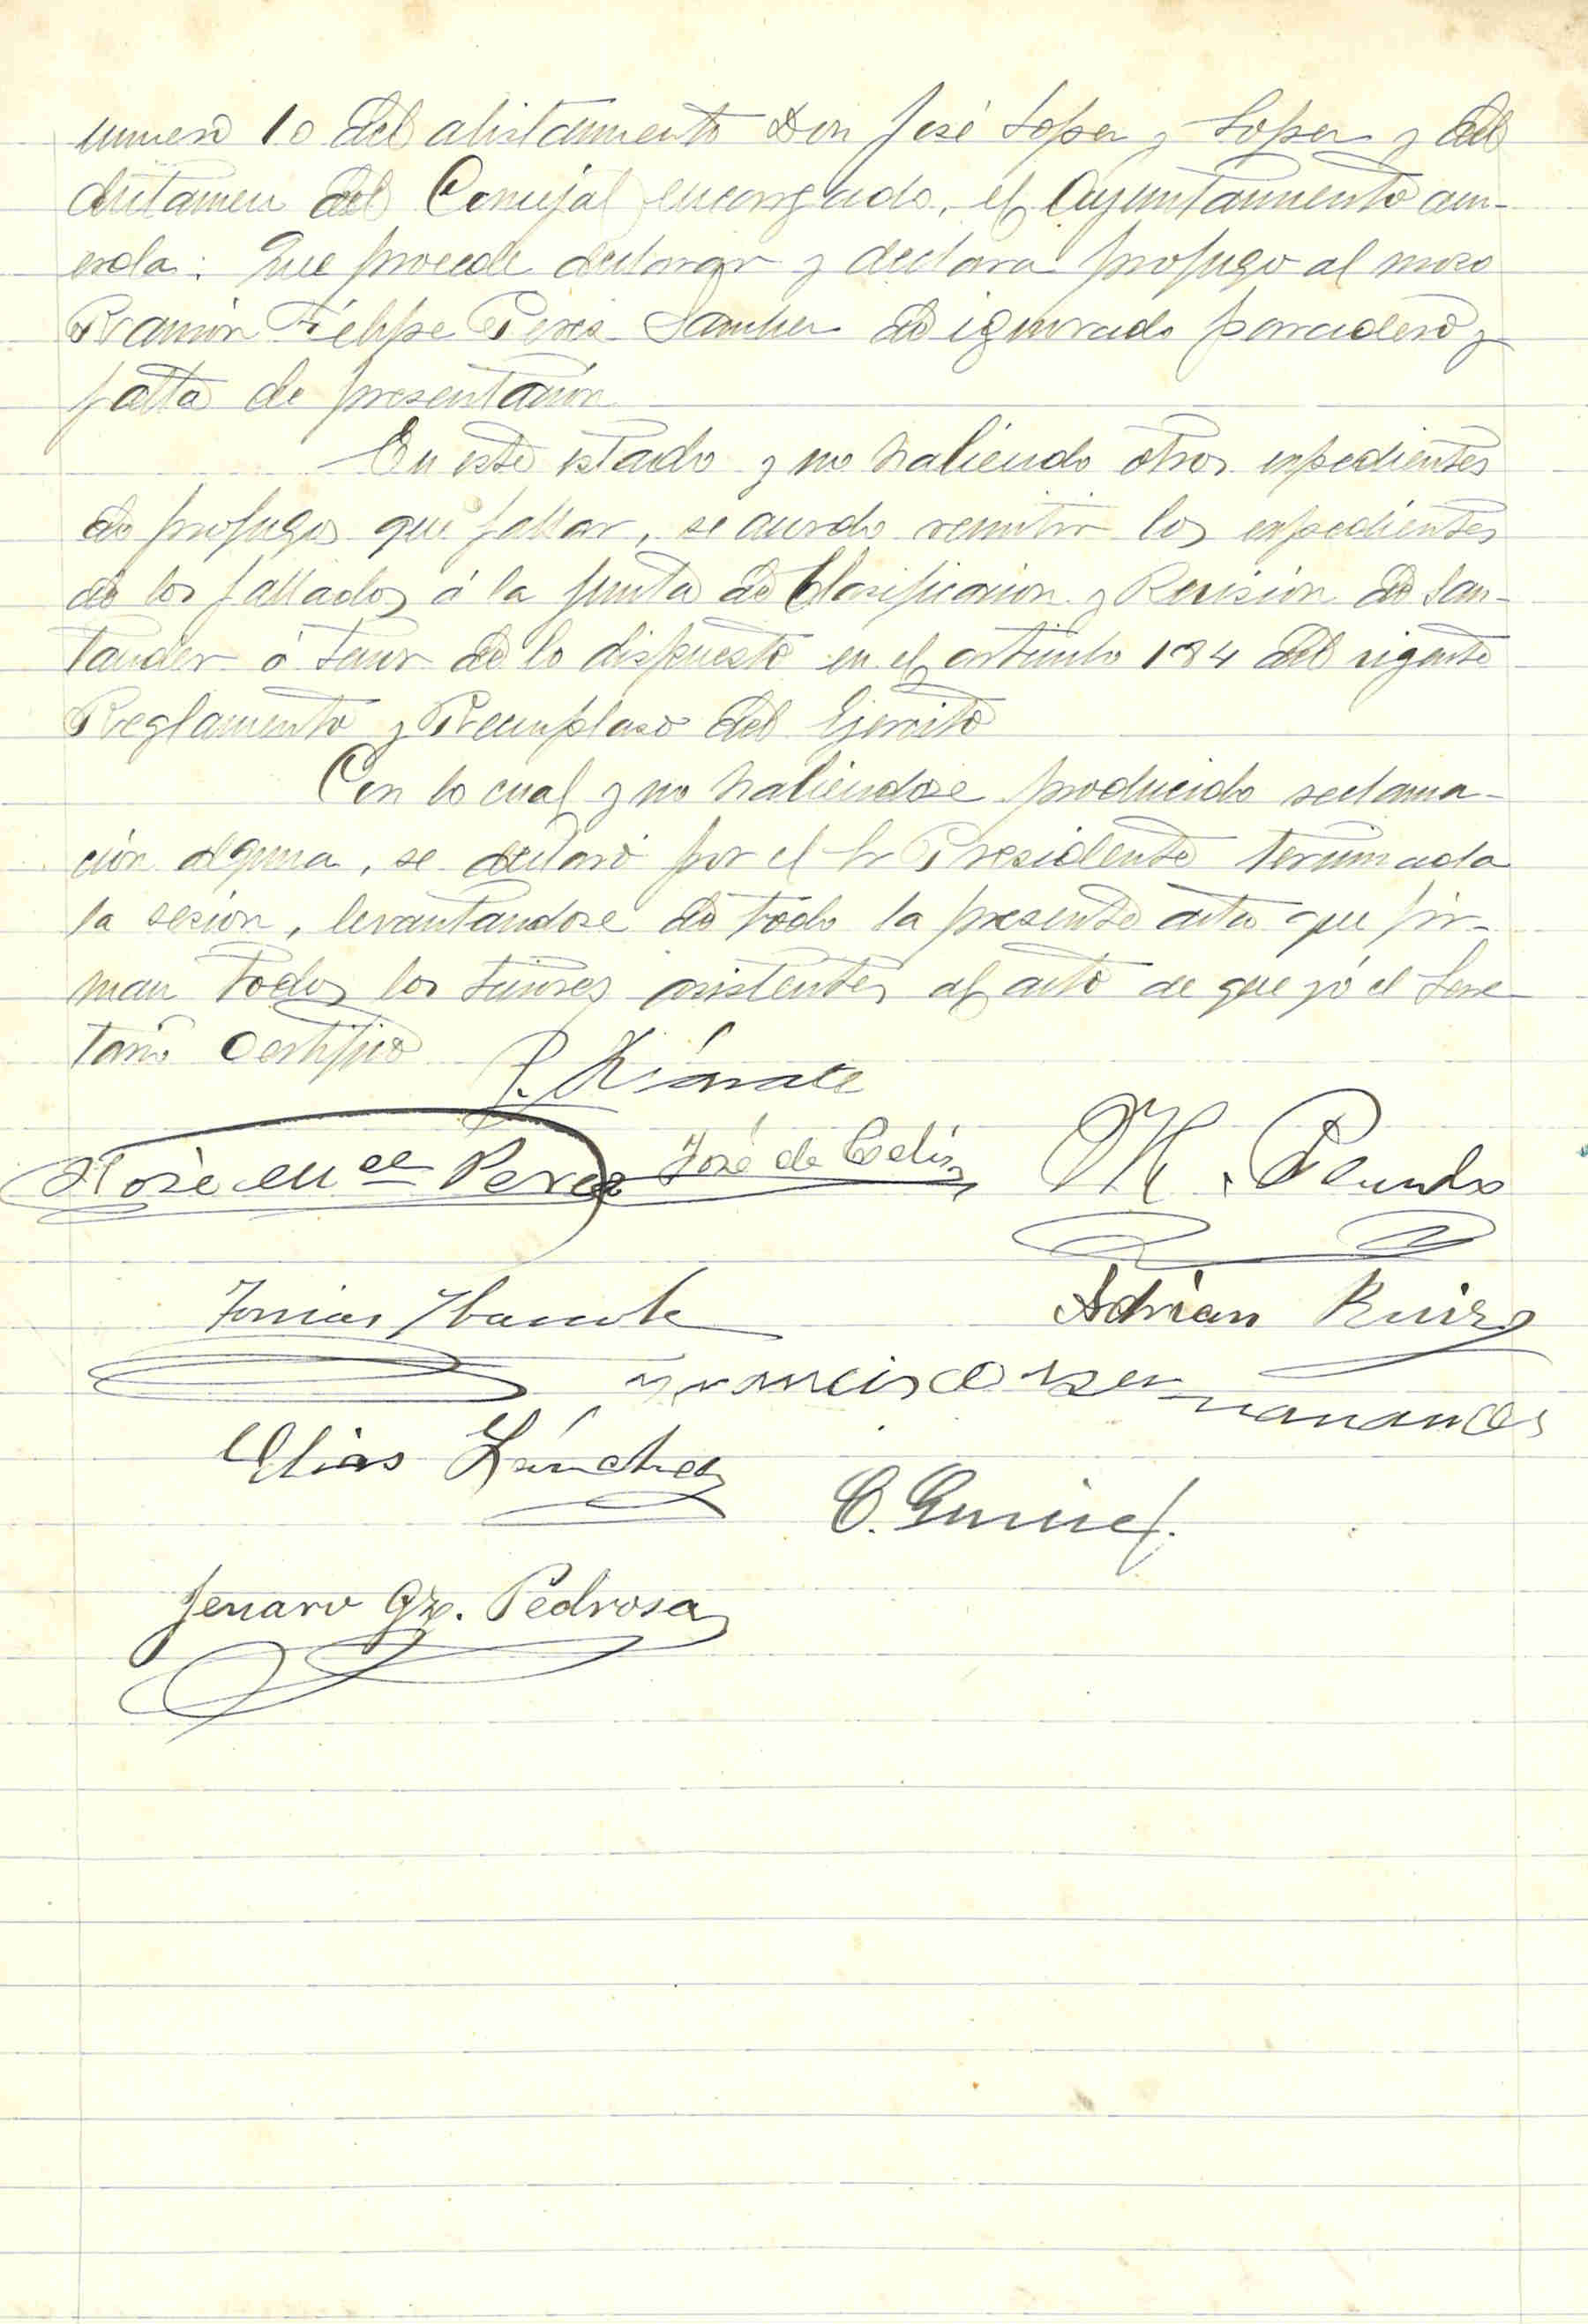 numero 10 del alistamiento Don José Lopez y Lopez y del
dictamen del Concejal encargado, el Ayuntamiento acu-
erda: Que procede declarar y declara profugo al mozo
Ramón Felipe Perez Sanchez de ignorado paradero y
falta de presentación
En este estado y no habiendo otros expedientes
de profugos que fallar, se acordo remitir los expedientes
de los fallados á la Junta de Clasificacion y Revisión de San-
tander á tenor de lo dispuesto en el articulo 184 del vigente
Reglamento y Reemplazo del Ejercito
Con lo cual y no habiendose producido reclama-
ción alguna, se declaró por el Sr Presidente terminada
la sesion, levantandose de todo la presente acta que fir-
man todos los señores asistentes al acto de que yó el Secre-
tario Certifico
José Perez José de Celis M.
Tomas Adrián Ruiz
Francisco
Elias Sánchez
Jenaro Gz. Pedrosa